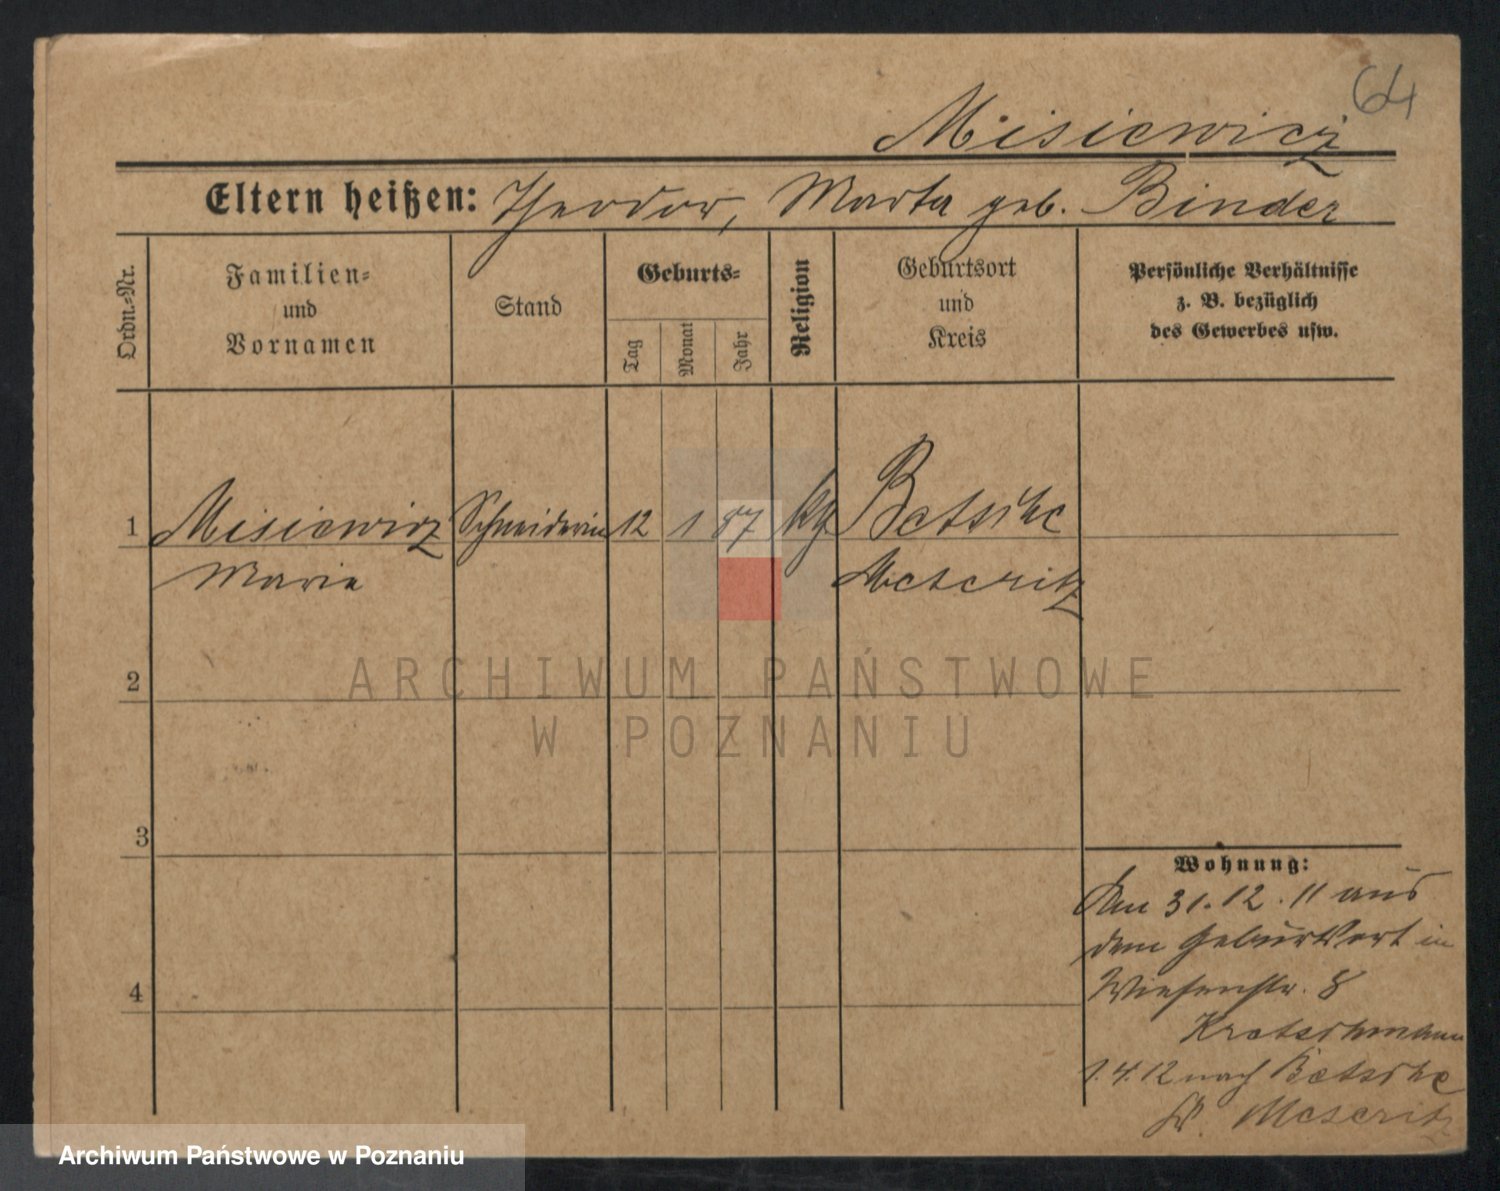 64
Misiewicz
Eltern heißen: Theodor, Marta geb. Binder
Ordn.=Nr.
Familien=
und
Vornamen
Stand
Geburts=
Tag
Monat
Jahr
Religion
Geburtsort
und
Kreis
Persönliche Verhältnisse
z. B. bezüglich
des Gewerbes usw.
1 Misiewicz Schneiderin 12 1 87 kth Betsche
Maria Meseritz
2
3
4
Wohnung:
Am 31.12.11 aus
dem Geburtsort in
Wiesenstr. 8
Kretschmann
1.4.12 nach Betsche
Kr. Meseritz
ARCHIWUM PAŃSTWOWE
W POZNANIU
Archiwum Państwowe w Poznaniu